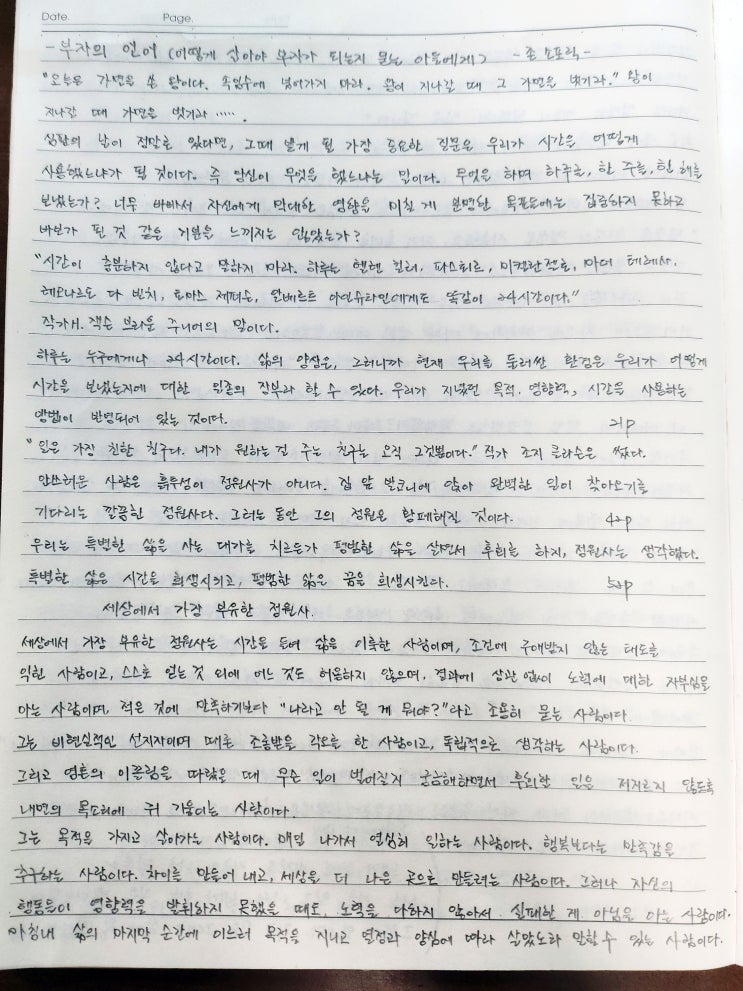 Date. Page.
- 부자의 언어 (어떻게 살아야 부자가 되는지 묻는 아들에게) - 존 소포릭 -
"오늘은 가면을 쓴 왕이다. 속임수에 넘어가지 마라. 왕이 지나갈 때 그 가면을 벗기라." 왕이
지나갈 때 가면을 벗기라 .....
심판의 날이 정말로 있다면, 그때 받게 될 가장 중요한 질문은 우리가 시간을 어떻게
사용했느냐가 될 것이다. 즉 당신이 무엇을 했느냐는 말이다. 무엇을 하며 하루를, 한 주를, 한 해를
보냈는가? 너무 바빠서 자신에게 막대한 영향을 미칠 게 분명한 목표들에는 집중하지 못하고
바보가 된 것 같은 기분을 느끼지는 않았는가?
"시간이 충분하지 않다고 말하지 마라. 하루는 헬렌 켈러, 파스퇴르, 미켈란젤로, 마더 테레사.
레오나르도 다 빈치, 토마스 제퍼슨, 알베르트 아인슈타인에게도 똑같이 24시간이다."
작가 H. 잭슨 브라운 주니어의 말이다.
하루는 누구에게나 24시간이다. 삶의 양상은, 그러니까 현재 우리를 둘러싼 환경은 우리가 어떻게
시간을 보냈는지에 대한 일종의 장부라 할 수 있다. 우리가 지녔던 목적. 영향력, 시간을 사용하는
방법이 반영되어 있는 것이다. 21p
"일은 가장 친한 친구다. 내가 원하는 걸 주는 친구는 오직 그것뿐이다." 작가 조지 클라슨은 썼다.
안쓰러운 사람은 흙투성이 정원사가 아니다. 집 앞 발코니에 앉아 완벽한 일이 찾아오기를
기다리는 깔끔한 정원사다. 그러는 동안 그의 정원은 황폐해질 것이다. 42p
우리는 특별한 삶을 사는 대가를 치르든가 평범한 삶을 살면서 후회를 하지, 정원사는 생각했다.
특별한 삶은 시간을 희생시키고, 평범한 삶은 꿈을 희생시킨다. 52p
세상에서 가장 부유한 정원사.
세상에서 가장 부유한 정원사는 시간을 들여 삶을 이룩한 사람이며, 조건에 구애받지 않는 태도를
익힌 사람이고, 스스로 얻는 것 외에 어느 것도 허용하지 않으며, 결과에 상관 없이 노력에 대한 자부심을
아는 사람이며, 적은 것에 만족하기보다 "나라고 안 될 게 뭐야?"라고 조용히 묻는 사람이다.
그는 비현실적인 선지자이며 때론 조롱받을 각오를 한 사람이고, 독립적으로 생각하는 사람이다.
그리고 영혼의 이끌림을 따랐을 때 무슨 일이 벌어질지 궁금해하면서 후회할 일은 저지르지 않도록
내면의 목소리에 귀 기울이는 사람이다.
그는 목적을 가지고 살아가는 사람이다. 매일 나가서 열심히 일하는 사람이다. 행복보다는 만족감을
추구하는 사람이다. 차이를 만들어 내고, 세상을 더 나은 곳으로 만들려는 사람이다. 그러나 자신의
행동들이 영향력을 발휘하지 못했을 때도, 노력을 다하지 않아서 실패한 게 아님을 아는 사람이다.
마침내 삶의 마지막 순간에 이르러 목적을 지니고 열정과 양심에 따라 살았노라 말할 수 있는 사람이다.